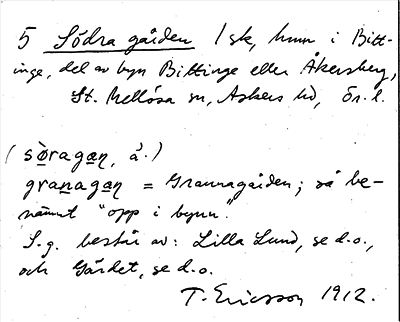 5 Södra gården 1 sk, hmn i Bitt-
inge, del av byn Bittinge eller Åkersberg,
St. Mellösa sn, Askers hd, Ör. l.
(sòragaṉ, å.)
granagaṉ = Grannagården; så be-
nämnt "opp i byn".
S.g. består av: Lilla Lund, se d.o.,
och Gärdet, se d.o.
T. Ericsson 1912.